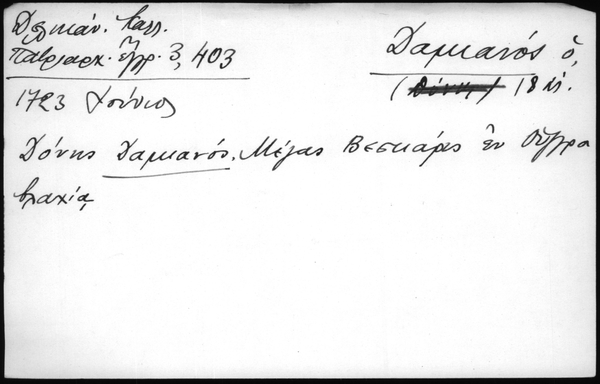 Δελικάν. Καλλ.
Πατριαρχ. ἔγγρ. 3, 403
Δαμιανός ὁ,
18 αἰ.
1723 Ἰούνιος
Δόνης Δαμιανός. Μέγας Βεσκάρης ἐν Οὑγγρο
βλαχίᾳ